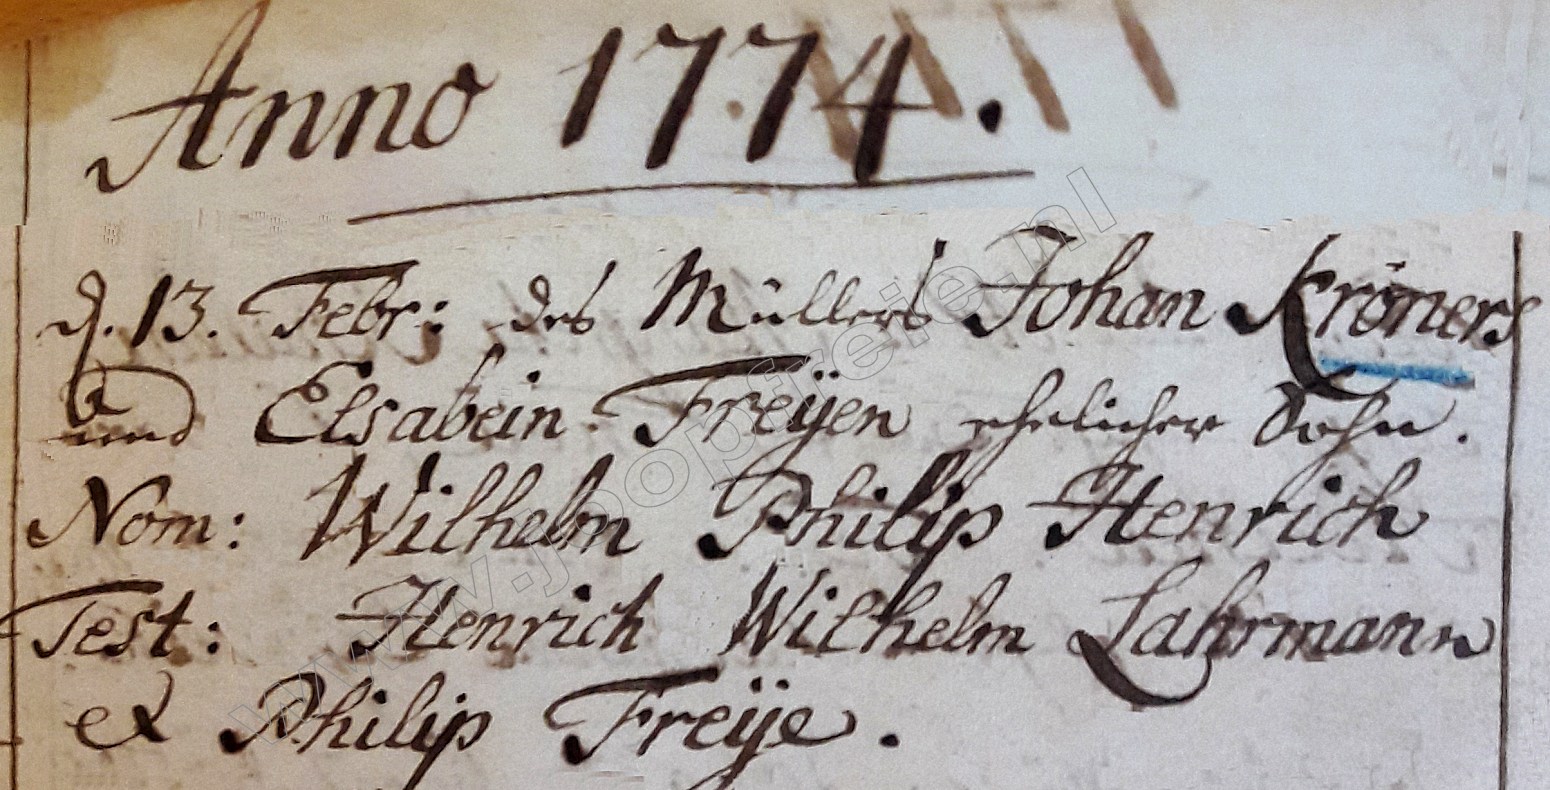 Anno 1774.
d. 13. Febr: des Müllers Johan Kröners
und Elsabein Freÿen ehelicher Sohn.
Nom: Wilhelm Philip Henrich
Test: Henrich Wilhelm Lahrmann
et Philip Freÿe.
www.joopfreie.nl